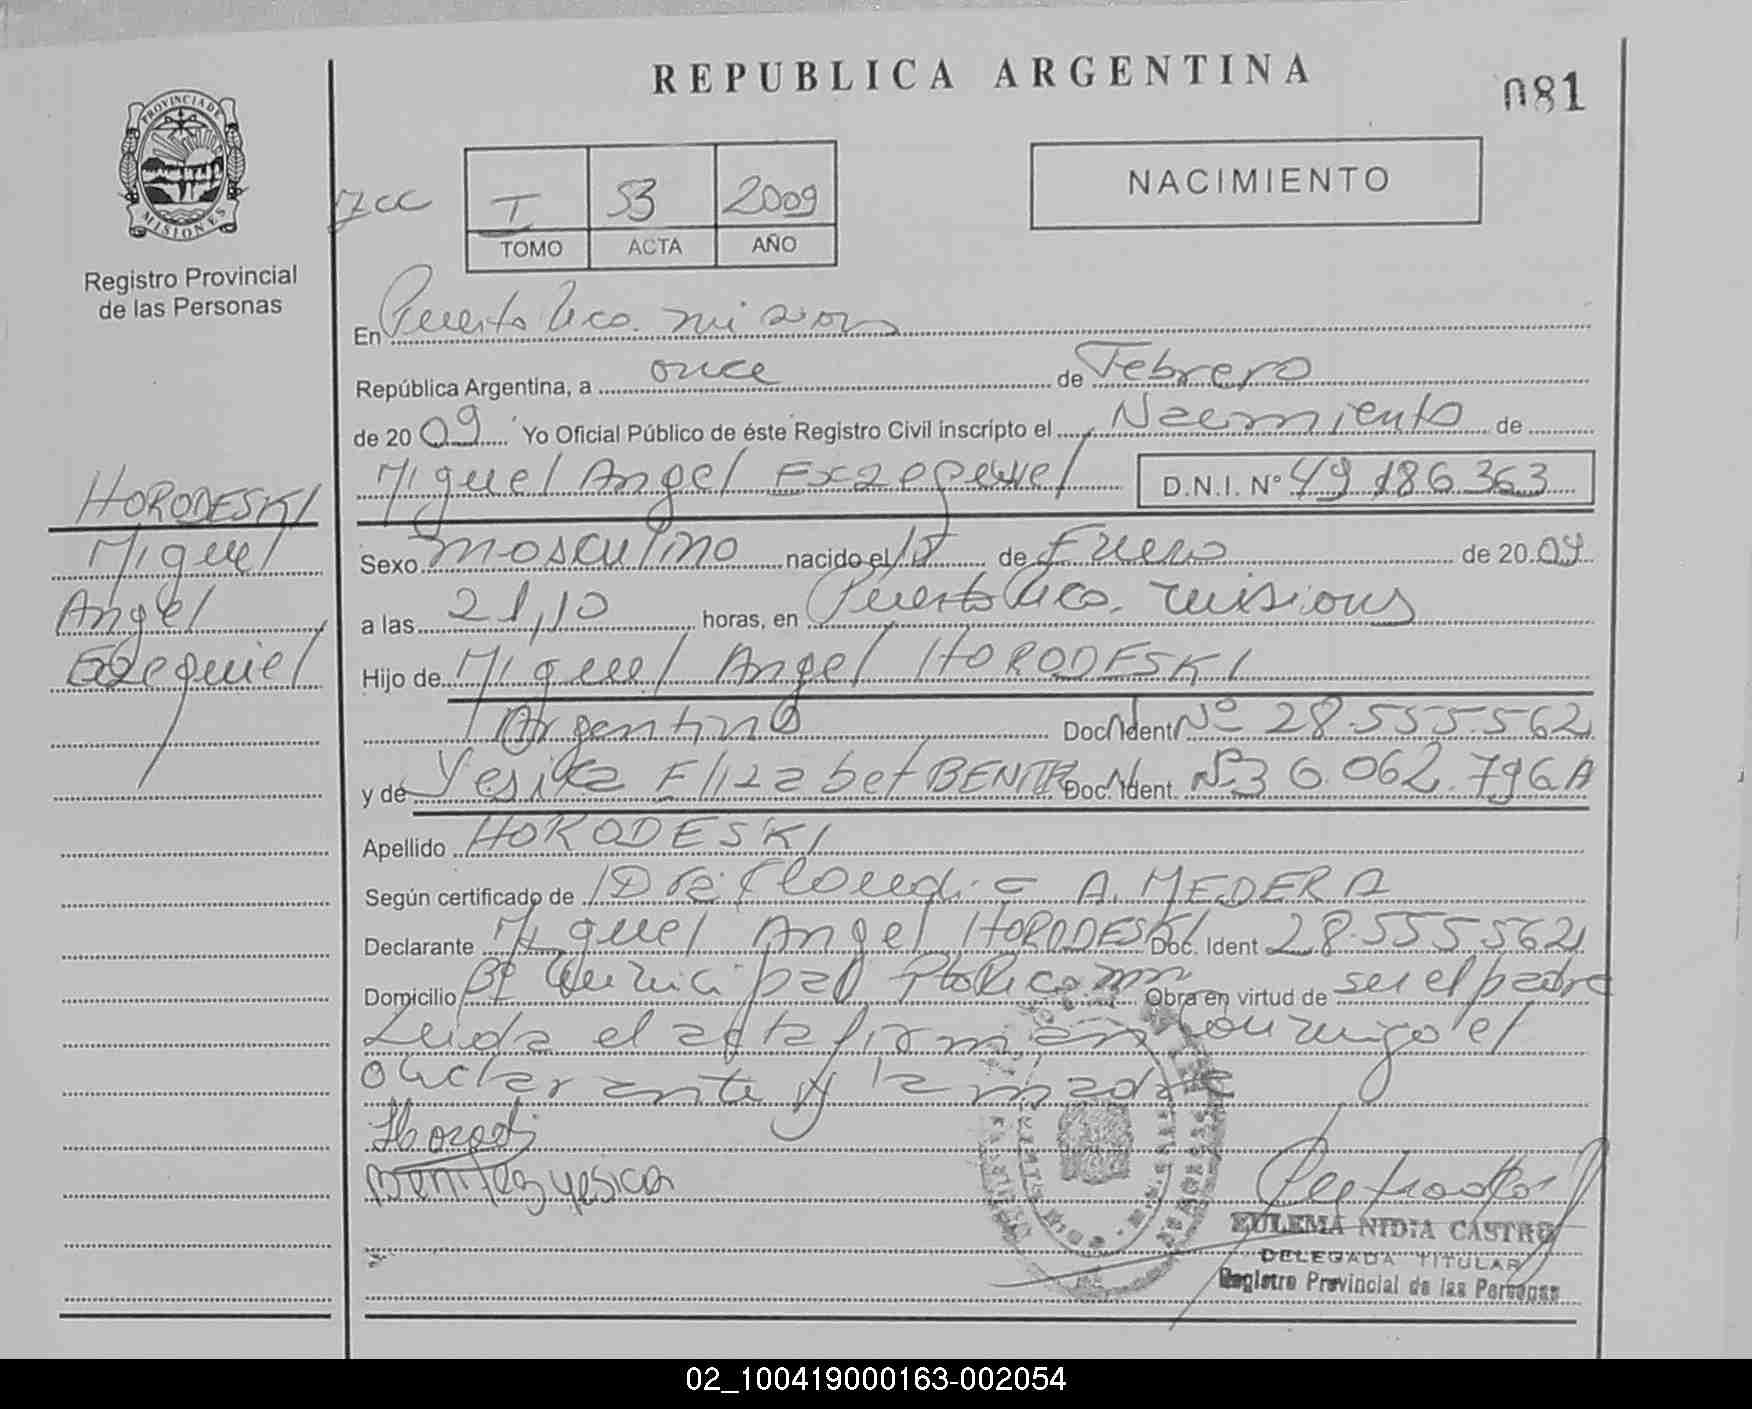 REPUBLICA ARGENTINA
081
PROVINCIA DE
MISIONES
Registro Provincial
de las Personas
I 53 2009
TOMO ACTA AÑO
NACIMIENTO
En Puerto Rico. misiones
República Argentina, a once de Febrero
de 2009 Yo Oficial Público de éste Registro Civil inscripto el Nacimiento de
Miguel Angel D.N.I. N° 49 186 363
HORODESKI
Miguel
Angel
Ezequiel
Sexo masculino nacido el 15 de Enero de 2009
a las 21,10 horas, en Puerto Rico. misiones
Hijo de Miguel Angel HORODESKI
Argentino Doc. Ident. Nº 28.555.562
y de Yesika Elizabet BENITEZ Doc. Ident. Nº 36.062.796 A
Apellido HORODESKI
Según certificado de Dra. Claudia A. MEDERA
Declarante Miguel Angel HORODESKI Doc. Ident 28.555 562
Domicilio Bº Municipal Pto Rico mn Obra en virtud de ser el padre
Leida el acta firman conmigo el
declarante y la madre
Horod
Benitez yesica
EULEMA NIDIA CASTRO
DELEGADA TITULAR
Registro Provincial de las Personas
02_100419000163-002054